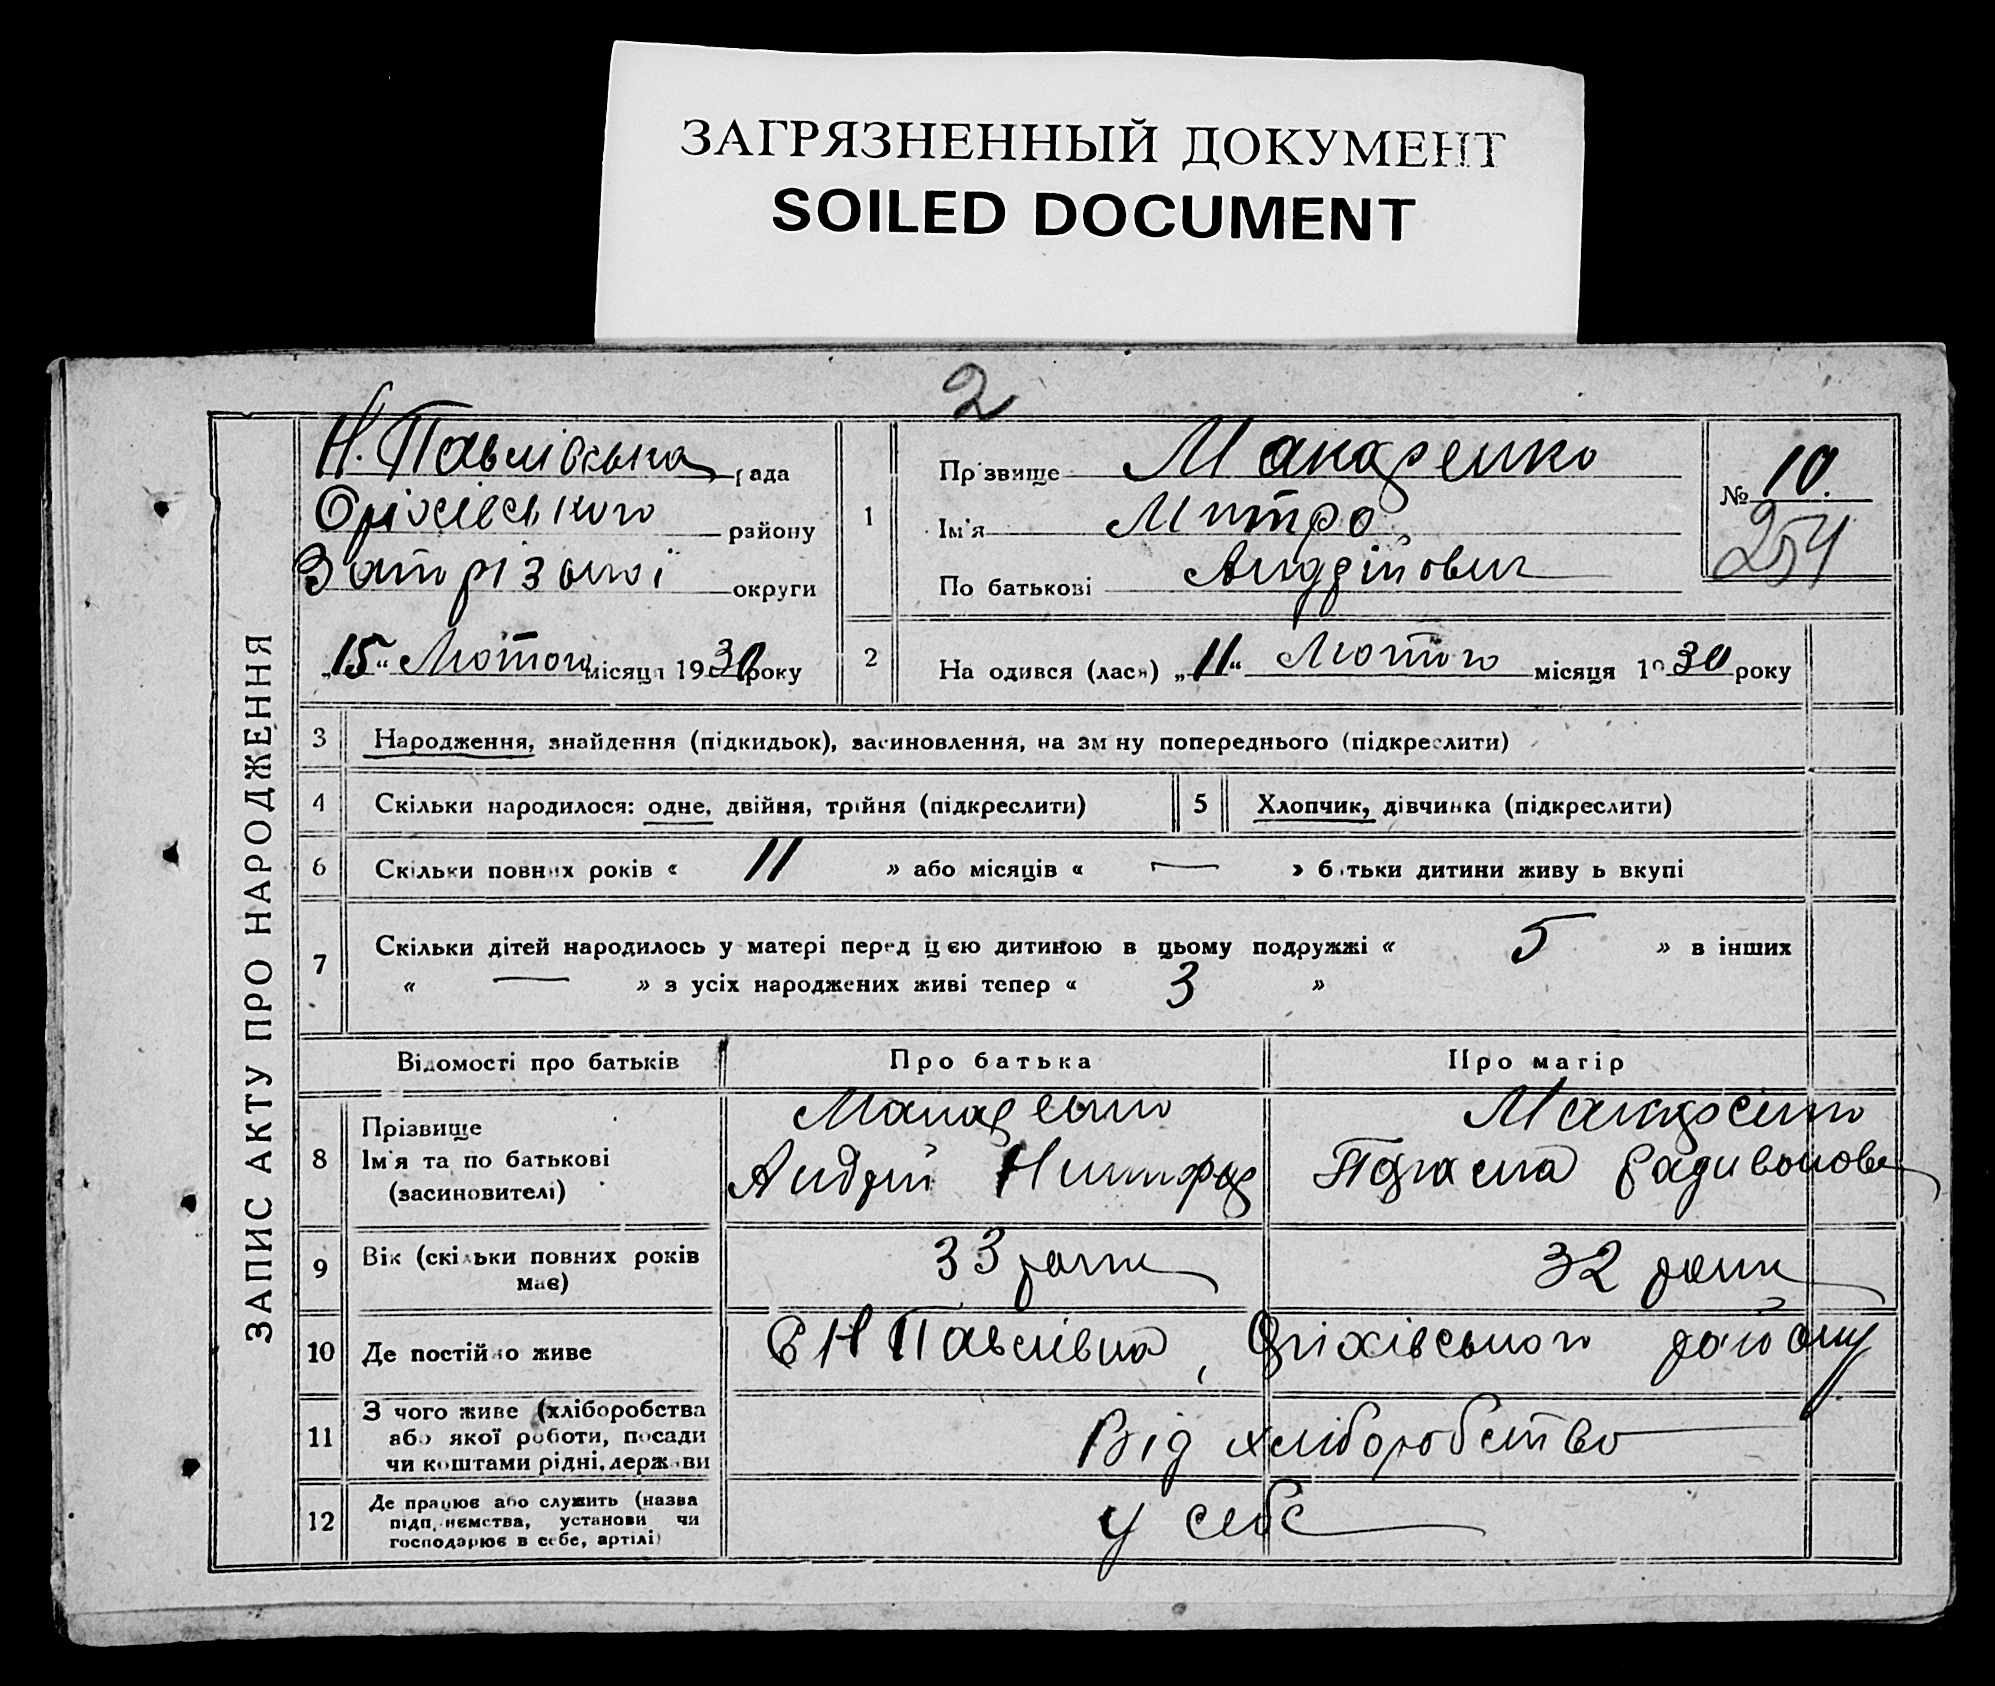 ЗАГРЯЗНЕННЫЙ ДОКУМЕНТ
SOILED DOCUMENT
2
ЗАПИС АКТУ ПРО НАРОДЖЕННЯ
Н. Павлівська рада
Оріхівського району
округи
"15" Лютого місяця 1930 року
1
Прізвище Макаренко
Ім'я Митро
По батькові Андрійович
№ 10
254
2 На одився (лася) „11“ Лютого місяця 1930 року
3 Народження, знайдення (підкидьок), засиновлення, на зм ну попереднього (підкреслити)
4 Скільки народилося: одне, двійня, трійня (підкреслити)
5 Хлопчик, дівчинка (підкреслити)
6 Скільки повних років « 11 » або місяців « — » б тьки дитини живу ь вкупі
7 Скільки дітей народилось у матері перед цією дитиною в цьому подружжі « 5 » в інших
« — » з усіх народжених живі тепер « 3 »
Відомості про батьків Про батька Про матір
8 Прізвище
Ім'я та по батькові
(засиновителі)
Макаренко
Андрій
Макаренко
9 Вік (скільки повних років
має)
33 роки
32 роки
10 Де постійно живе
С Н Павлівка, Оріхівського району
11 З чого живе (хліборобства
або якої роботи, посади
чи коштами рідні, держави
Від хліборобство
12 Де працює або служить (назва
підп иємства, установи чи
господарює в себе, артілі)
у себе